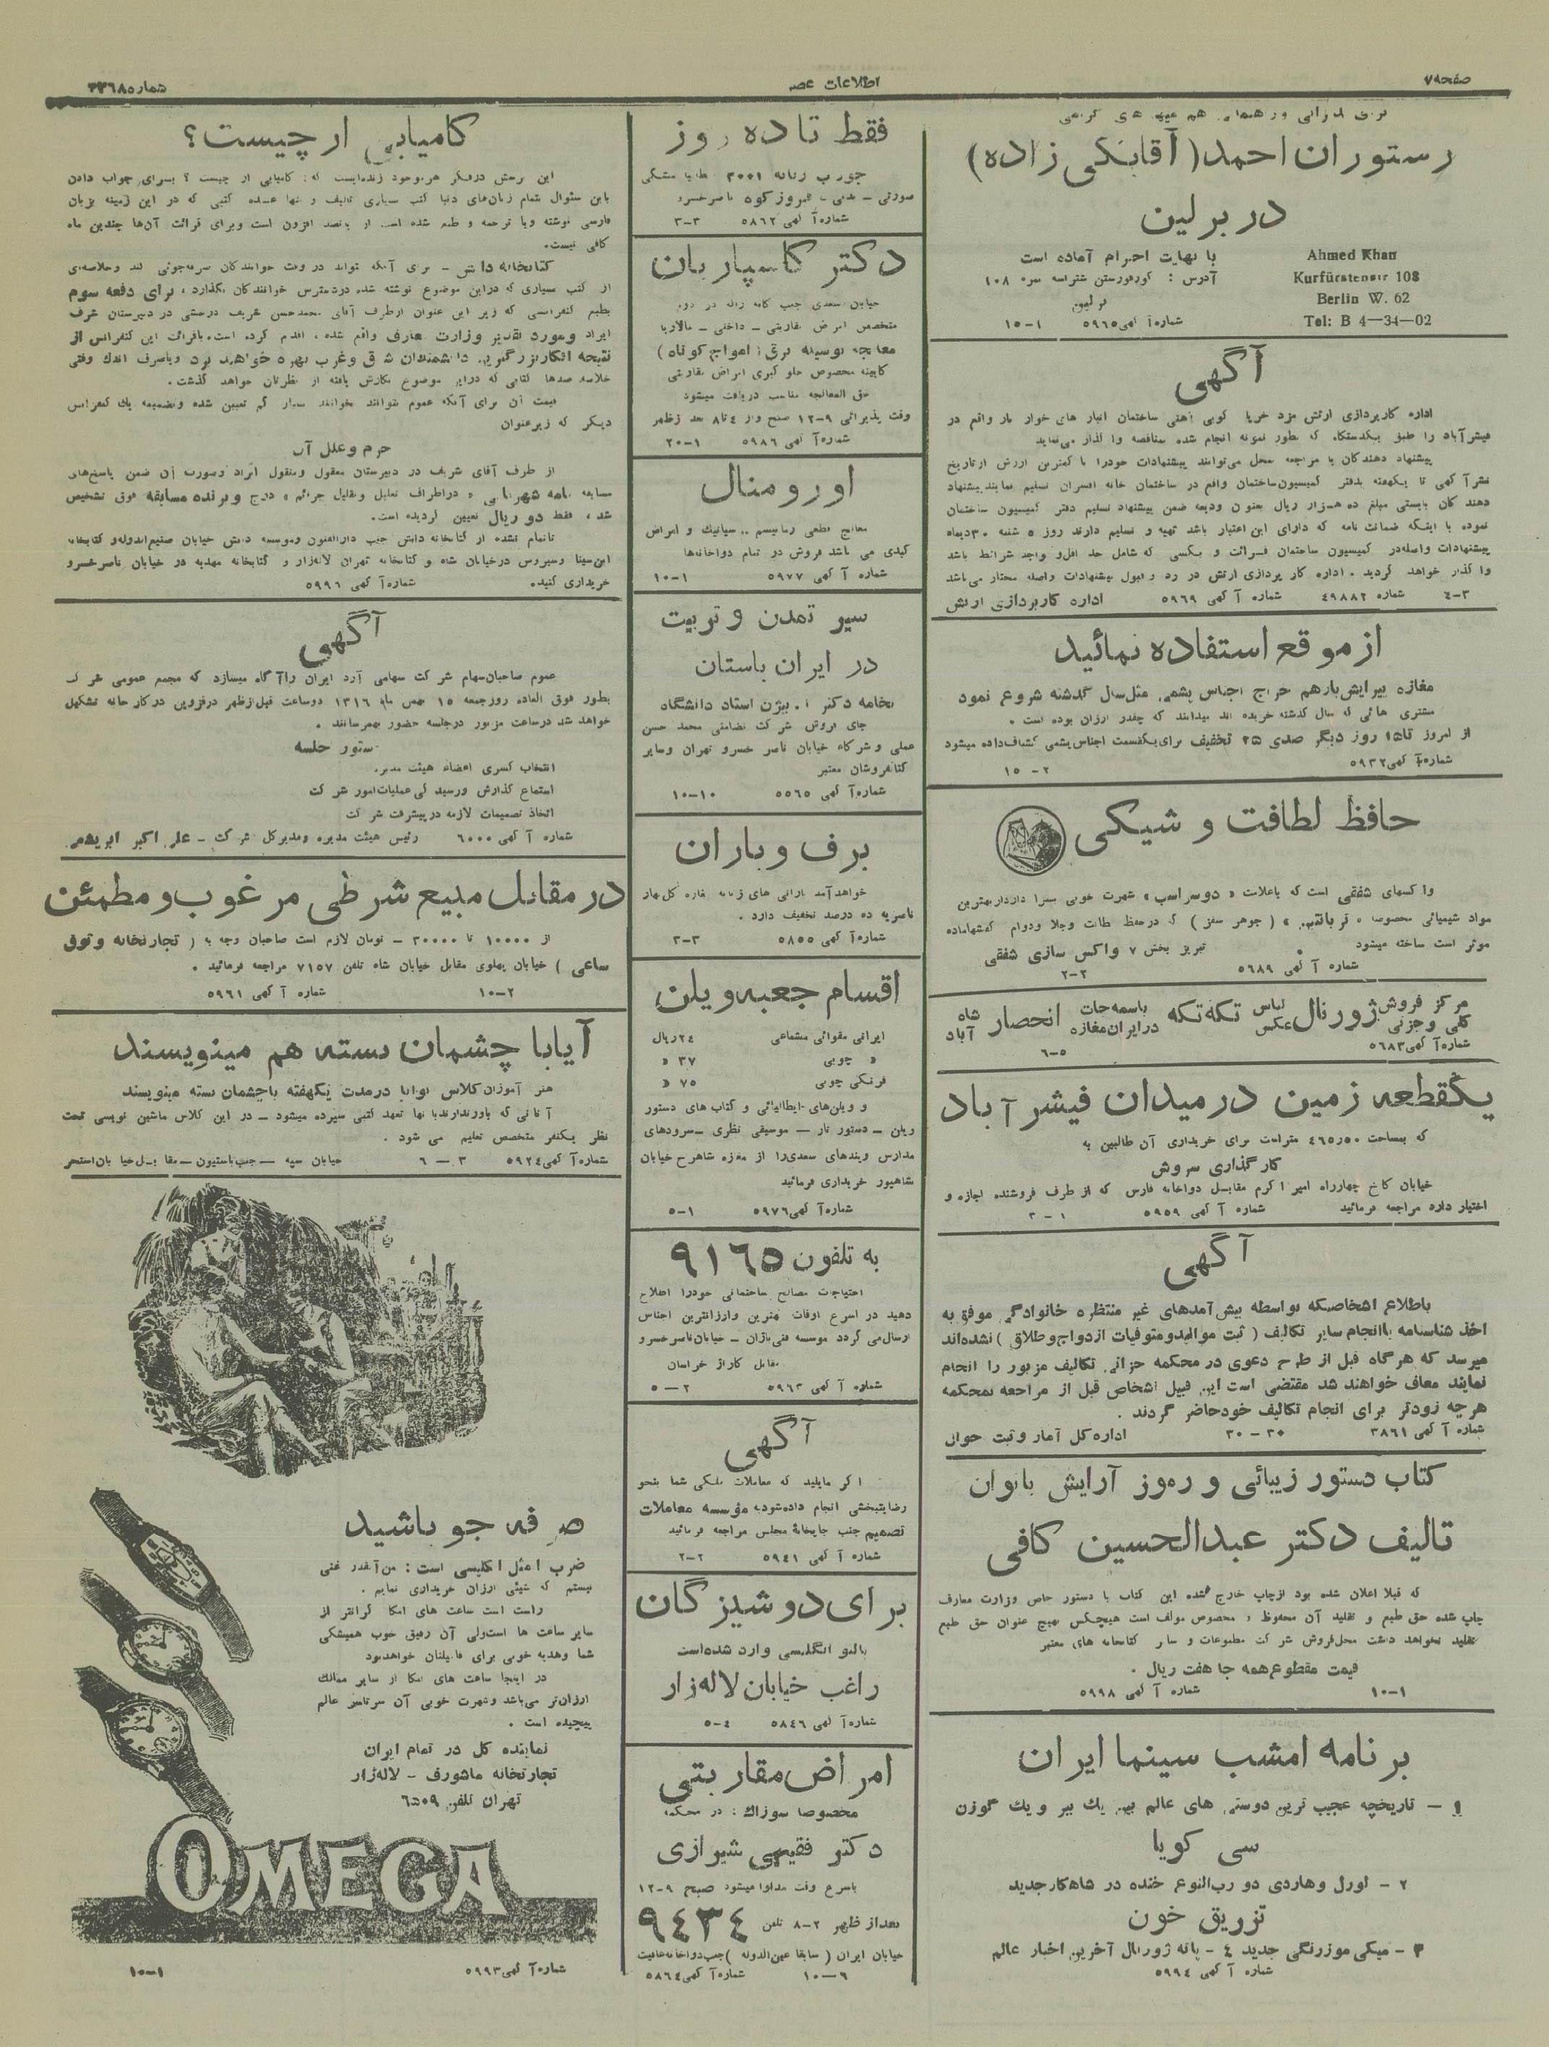 صفحه ۷
اطلاعات عصر
شماره ۳۳۶۸
رستوران احمد (آقابنکی زاده)
در برلین
با نهایت احترام آماده است
آدرس : کورفورستن شتراسه نمره ۱۰۸
برلین
شماره آگهی ۵۹۶۵ ۱-۱۵
Ahmed Khan
Kurfürstenstr 108
Berlin W. 62
Tel: B 4—34—02
آگهی
اداره کارپردازی ارتش مزد خرپا کوبی آهنی ساختمان انبار های خوار بار واقع در
فیشرآباد را طبق یکدستگاه که بطور نمونه انجام شده بمناقصه واگذار می‌نماید
پیشنهاد دهندگان با مراجعه بمحل می‌توانند پیشنهادات خودرا با کمترین ارزش از تاریخ
نشر آگهی تا یکهفته بدفتر کمیسیون ساختمان واقع در ساختمان خانه افسران تسلیم نمایند پیشنهاد
دهند گان بایستی مبلغ ده هزار ریال بعنوان ودیعه ضمن پیشنهاد تسلیم دفتر کمیسیون ساختمان
نموده با اینکه ضمانت نامه که دارای این اعتبار باشد تهیه و تسلیم دارند روز ۵ شنبه ۳۰ دیماه
پیشنهادات واصله در کمیسیون ساختمان قرائت و بکسی که شامل حد اقل و واجد شرائط باشد
واگذار خواهد گردید . اداره کارپردازی ارتش در رد و قبول پیشنهادات واصله مختار می‌باشد
۳-٤ شماره ٤۹۸۸۲ شماره آگهی ۵۹۶۹ اداره کارپردازی ارتش
از موقع استفاده نمائید
مغازه پیرایش بازهم حراج اجناس پشمی مثل سال گذشته شروع نمود
مشتری هائی که سال گذشته خریده اند میدانند که چقدر ارزان بوده است .
از امروز تا ۱۵ روز دیگر صدی ۲۵ تخفیف برای یکقسمت اجناس پشمی کشباف داده میشود
شماره آگهی ۵۹۳۲ ۲-۱۵
حافظ لطافت و شیکی
واکسهای شفقی است که باعلامت «دوسر اسب» شهرت خوبی بسزا دارد از بهترین
مواد شیمیائی مخصوصا « تربانتین » ( جوهر سقز ) که در حفظ طاقت وجلا ودوام کفشها ماده
موثر است ساخته میشود . تبریز بخش ۷ واکس سازی شفقی
شماره آگهی ۵۶۸۹ ۲-۲
مرکز فروش کلی و جزئی ژورنال لباس عکس تکه تکه باسمه جات در ایران مغازه انحصار شاه آباد
شماره آگهی ۵۶۸۳ ۵-۶
یکقطعه زمین در میدان فیشرآباد
که بمساحت ٤۶۵٫۵۰ متراست برای خریداری آن طالبین به
کارگذاری سروش
خیابان کاخ چهارراه امیر اکرم مقابل دواخانه فارس که از طرف فروشنده اجازه و
اختیار دارد مراجعه فرمائید شماره آگهی ۵۹۵۹ ۱-۳
آگهی
باطلاع اشخاصیکه بواسطه پیش آمدهای غیر منتظره خانوادگی موفق به
اخذ شناسنامه یاانجام سایر تکالیف ( ثبت موالید و متوفیات ازدواج و طلاق ) نشده‌اند
میرسد که هرگاه قبل از طرح دعوی در محکمه جزائی تکالیف مزبور را انجام
نمایند معاف خواهند شد مقتضی است این قبیل اشخاص قبل از مراجعه بمحکمه
هرچه زودتر برای انجام تکالیف خود حاضر گردند .
شماره آگهی ۳۸۶۱ ۳۰-۳۰ اداره کل آمار و ثبت احوال
کتاب دستور زیبائی و رموز آرایش بانوان
تالیف دکتر عبدالحسین کافی
که قبلا اعلان شده بود ازچاپ خارج شده این کتاب با دستور خاص وزارت معارف
چاپ شده حق طبع و تقلید آن محفوظ و مخصوص مولف است هیچکس بهیچ عنوان حق طبع
تقلید نخواهد داشت محل فروش شرکت مطبوعات و سایر کتابخانه های معتبر
قیمت مقطوع همه جا هفت ریال .
۱-۱۰ شماره آگهی ۵۹۹۸
برنامه امشب سینما ایران
۱ - تاریخچه عجیب ترین دوستی های عالم بین یک ببر و یک گوزن
سی کویا
۲ - لورل وهاردی دو رب‌النوع خنده در شاهکار جدید
تزریق خون
۳ - میکی موزرنگی جدید ٤ - پاته ژورنال آخرین اخبار عالم
شماره آگهی ۵۹۹٤
فقط تا ده روز
جوراب زنانه ۳۰۰۱
شماره آگهی ۵۸۶۲ ۳-۳
دکتر کاسپاریان
متخصص امراض مقاربتی - داخلی - مالاریا
معالجه بوسیله برق ( امواج کوتاه )
کابینه مخصوص جلوگیری امراض مقاربتی
حق المعالجه مناسب دریافت میشود
وقت پذیرائی ۹-۱۲ صبح و از ٤ تا ۸ بعد از ظهر
شماره آگهی ۵۹۸۶ ۱-۲۰
اورومنال
معالج قطعی رماتیسم .. سیاتیک و امراض
کبدی می باشد فروش در تمام دواخانه‌ها
شماره آگهی ۵۹۷۷ ۱-۱۰
سیر تمدن و تربیت
در ایران باستان
بخامه دکتر ا. بیژن استاد دانشگاه
جای فروش شرکت تضامنی محمد حسن
علمی و شرکاء خیابان ناصر خسرو تهران وسایر
کتابفروشان معتبر
شماره آگهی ۵۵۶۵ ۱۰-۱۰
برف و باران
ناصریه ده درصد تخفیف دارد .
شماره آگهی ۵۸۵۵ ۳-۳
اقسام جعبه ویلن
ایرانی مقوائی مشمائی ۲٤ ریال
« چوبی ۳۷ «
فرنگی چوبی ۷۵ «
و ویلن‌های ایطالیائی و کتاب های دستور
ویلن - دستور تار - موسیقی نظری - سرودهای
مدارس وبندهای سعدی را از مغازه شاهرخ خیابان
شاهپور خریداری فرمائید
شماره آگهی ۵۹۷۶ ۱-۵
به تلفون ۹۱٦۵
احتیاجات مصالح ساختمانی خودرا اطلاع
دهید در اسرع اوقات بهترین وارزانترین اجناس
ارسال می گردد موسسه فنی باژان - خیابان ناصرخسرو
مقابل گاراژ خراسان
شماره آگهی ۵۹۶۳ ۲-۵
آگهی
اگر مایلید که معاملات ملکی شما بنحو
رضایتبخشی انجام داده شود به مؤسسه معاملات
تصمیم جنب چاپخانه مجلس مراجعه فرمائید
شماره آگهی ۵۹٤۱ ۲-۲
برای دوشیزگان
پالتو انگلیسی وارد شده است
راغب خیابان لاله‌زار
شماره آگهی ۵۸٤۶ ٤-۵
امراض مقاربتی
مخصوصا سوزاک : در محکمه
دکتر فقیهی شیرازی
باسرع وقت مداوا میشود صبح ۹-۱۲
بعداز ظهر ۲-۸ تلفن ۹٤۳٤
خیابان ایران ( سابقا عین‌الدوله ) جنب دواخانه عافیت
۶-۱۰ شماره آگهی ۵۸۶٤
کامیابی از چیست ؟
این پرسش در فکر هر موجود زنده‌ایست که : کامیابی از چیست ؟ برای جواب دادن
باین سئوال بتمام زبان‌های دنیا کتب بسیاری تالیف و تنها عده کتبی که در این زمینه بزبان
فارسی نوشته ویا ترجمه و طبع شده است از پانصد افزون است وبرای قرائت آن‌ها چندین ماه
کافی نیست .
کتابخانه دانش - برای آنکه بتواند در وقت خوانندگان صرفه‌جوئی کند وخلاصه‌ای
از کتب بسیاری که دراین موضوع نوشته شده دردسترس خوانندگان بگذارد ، برای دفعه سوم
بطبع کنفرانسی که زیر این عنوان ازطرف آقای محمدحسن شریف در دبیرستان شرف
ایراد ومورد تقدیر وزارت معارف واقع شده ، اقدام کرده است. باقرائت این کنفرانس از
نتیجه افکار بزرگترین دانشمندان شرق وغرب بهره خواهید برد وباصرف اندک وقتی
خلاصه صدها کتابی که دراین موضوع نگارش یافته از نظرتان خواهد گذشت .
قیمت آن برای آنکه عموم بتوانند بخوانند بسیار کم تعیین شده وبضمیمه یک کنفرانس
دیگر که زیرعنوان
جرم وعلل آن
از طرف آقای شریف در دبیرستان معقول ومنقول ایراد وصورت آن ضمن پاسخ‌های
مسابقه نامه شهربانی « دراطراف تعلیل وتقلیل جرائم » درج و برنده مسابقه فوق تشخیص
شد ، فقط دو ریال تعیین گردیده است.
تاتمام نشده از کتابخانه دانش جنب دارالفنون وموسسه دانش خیابان صنیع‌الدوله وکتابخانه
ابن‌سینا وسیروس درخیابان شاه و کتابخانه تهران لاله‌زار و کتابخانه مهدیه در خیابان ناصرخسرو
خریداری کنید. شماره آگهی ۵۹۹۶
آگهی
عموم صاحبان سهام شرکت سهامی آرد ایران را آگاه میسازد که مجمع عمومی شرکت
بطور فوق العاده روز جمعه ۱۵ بهمن ماه ۱۳۱۶ دوساعت قبل از ظهر درقزوین در کارخانه تشکیل
خواهد شد درساعت مزبور درجلسه حضور بهمرسانند .
دستور جلسه
انتخاب کسری اعضاء هیئت مدیره
استماع گذارش ورسیدگی عملیات امور شرکت
اتخاذ تصمیمات لازمه در پیشرفت شرکت
شماره آگهی ۶۰۰۰ رئیس هیئت مدیره ومدیرکل شرکت - علی اکبر
در مقابل مبیع شرطی مرغوب و مطمئن
از ۱۰۰۰۰ تا ۳۰۰۰۰ - تومان لازم است صاحبان وجه به ( تجارتخانه وثوق
ساعی ) خیابان پهلوی مقابل خیابان شاه تلفن ۷۱۵۷ مراجعه فرمائید .
۲-۱۰ شماره آگهی ۵۹۶۱
آیا با چشمان بسته هم مینویسند
هنر آموزان کلاس درمدت یکهفته باچشمان بسته مینویسند
آقائی که باورندارند با آنها تعهد کتبی سپرده میشود - در این کلاس ماشین نویسی تحت
نظر یکنفر متخصص تعلیم می شود .
شماره آگهی ۵۹۲٤ ۳-۶ خیابان سپه - جنب باستیون - مقابل خیابان استخر
صرفه جو باشید
ضرب المثل انگلیسی است : من آنقدر غنی
نیستم که شیئی ارزان خریداری نمایم .
راست است ساعت های امگا گرانتر از
سایر ساعت ها است ولی آن رفیق خوب همیشگی
شما وهدیه خوبی برای فامیلتان خواهدبود
در اینجا ساعت های امگا از سایر ممالک
ارزان‌تر می‌باشد وشهرت خوبی آن سرتاسر عالم
پیچیده است .
نماینده کل در تمام ایران
تجارتخانه ماشورف - لاله‌زار
تهران تلفن ۶۵۰۹
OMEGA
شماره آگهی ۵۹۹۳ ۱-۱۰